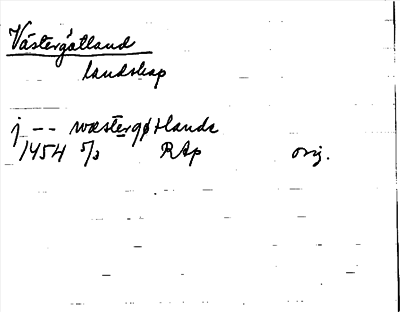 Västergötland
landskap
j -- wæstergøtlandz
1454 5/3 RAp orig.